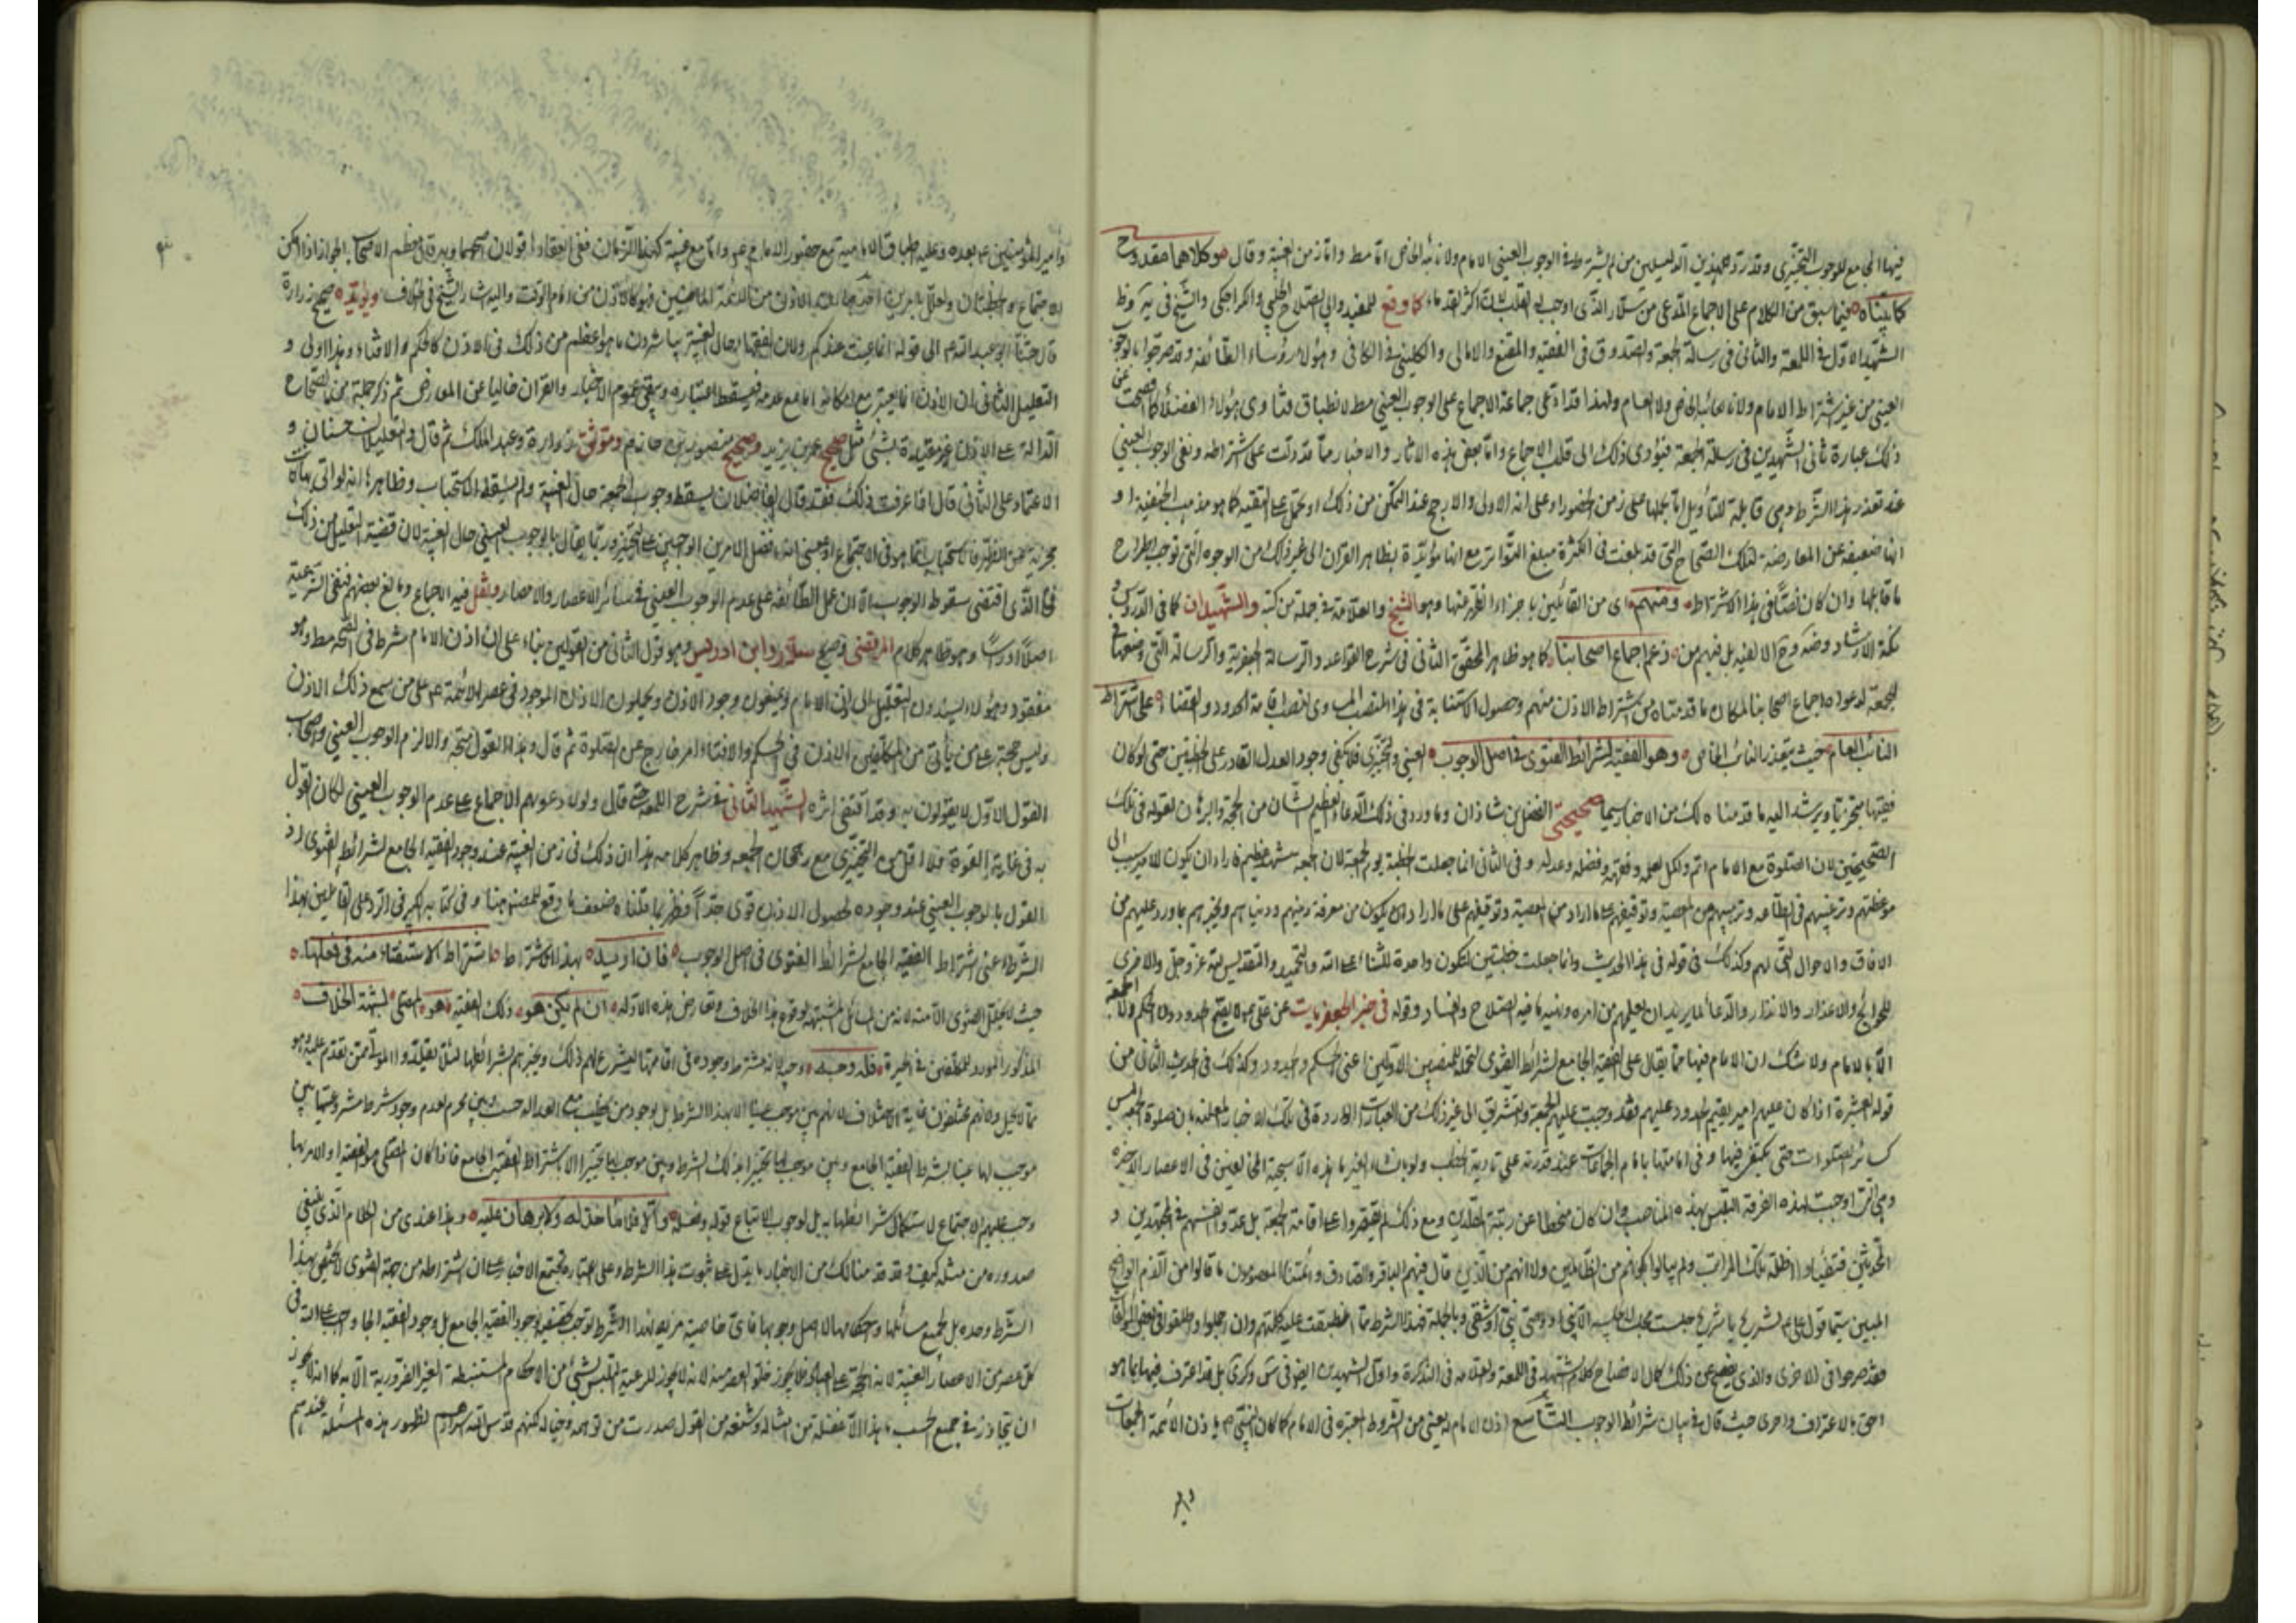 فيها الجامع للوجوب التخييري وقد رد هذين الدليلين من لم يشترط في الوجوب العيني الامام ولا نائبه الخاص اما مط واما زمن الغيبة وقال وكلاهما مقدوح
كما بيناه فيما سبق من الكلام على الاجماع المدعى من سلار الذي اوجب القلب اكثر القدماء كما وقع للمفيد وابي الصلاح الحلبي والكراجكي والشيخ في يه وظ
الشهيد الاول في اللمعة والثاني في رسالة الجمعة والصدوق في الفقيه والمقنع والامالي والكليني في الكافي وهؤلاء رؤساء الطائفة وقد صرحوا بالوجوب
العيني من غير اشتراط الامام ولا نائبه الخاص ولا العام ولهذا قد ادعى جماعة الاجماع على الوجوب العيني مط لانطباق فتاوى هؤلاء الفضلاء كما افصحت عن
ذلك عبارة ثاني الشهيدين في رسالة الجمعة فيؤدى ذلك الى قلب الاجماع واما بعض هذه الاثار والاخبار مما قد دلت على اشتراطه ونفي الوجوب العيني
عند تعذر هذا الشرط وهي قابلة للتأويل اما بحملها على زمن الحضور او على انه الاولى والارجح عند التمكن من ذلك او تحمل على التقية كما هو مذهب الحنفية او
انها ضعيفة عن المعارضة لتلك الصحاح التي قد بلغت في الكثرة مبلغ التواتر مع انها مؤيدة بظاهر القران الى غير ذلك من الوجوه التي توجب اطراح
ما قابلها وان كان نصا في هذا الاشتراط ومنهم اى من القائلين باجزاء الظهر منها وهو الشيخ والعلامة في جملة من كتبه والشهيدان كما في الدروس
نكتة الارشاد وضه وح الالفيه بل فيهم من زعم اجماع اصحابنا كما هو ظاهر المحقق الثاني في شرح القواعد والرسالة الجعفرية والرسالة التي وضعها في
الجمعة لدعواه اجماع اصحابنا لمكان ما قدمناه من اشتراط الاذن منهم وحصول الاستنابة في هذا المنصب المساوى لمنصب اقامة الحدود والقضاء على اشتراط
النائب العام حيث يتعذر النائب الخاص وهو الفقيه لشرائط الفتوى في اصل الوجوب العيني والتخييرى فلا يكفى وجود العدل القادر على الخطبتين حتى لو كان
فقيها متجزيا ويرشد اليه ما قدمنا لك من الاخبار سيما صحيحتى الفضل بن شاذان وما ورد في ذلك الدعاء العظيم الشان من الحجة والبرهان لقوله في تلك
الصحيحتين لان الصلوة مع الامام اتم واكمل لعلمه وفقهه وفضله وعدله وفي الثاني انما جعلت الخطبة يوم الجمعة لان الجمعة مشهد عظيم فاراد ان يكون للامير سبب الى
موعظتهم وترغيبهم في الطاعة وترهيبهم عن المعصية وتوقيفهم على ما اراد من المعصية وتوقيفهم على ما اراد ان يكون من معرفة دينهم ودنياهم ويخبرهم بما ورد عليهم من
الافاق والاحوال التي لهم وكذلك في قوله في هذا الحديث وانما جعلت خطبتين لتكون واحدة للثناء على الله والتحميد والتقديس لله عز وجل والاخرى
للحوائج والاعذار والانذار والدعاء لما يريد ان يعلمهم من امره ونهيه ما فيه الصلاح والفساد وقوله في خبر الجعفريات عن على ع لا يقيم الحدود ولا الحكم ولا الجمعة
الا بالامام ولا شك ان الامام فيها مما يقال على الفقيه الجامع لشرائط الفتوى لتحمله للمنصبين الاولين اعنى الحكم والحدود وكذلك في الحديث الثانى من
قوله العشيرة اذا كان عليهم امير يقيم الحدود عليهم فقد وجبت عليهم الجمعة والتشريق الى غير ذلك من العبارات الواردة في تلك الاخبار المعلنه بان صلوة الجمعة ليس
كسائر الصلوات حتى يكتفى فيها وفي امامتها بامام الجماعات عند قدرته على تادية الخطب ولو بانشاء الغير ما هذه الا سجية المخالفين في الاعصار الاخيرة
وهي التي اوجبت لهذه الفرقة التلبس بهذه المناصب وان كان منحطا عن رتبة التقليد ومع ذلك لم يقتصروا على اقامة الجمعة بل عدوا انفسهم في المجتهدين و
المحدثين
المبين سيما قول على ع لشريح يا شريح جلست مجلسا لا يجلسه الا نبي او وصى نبى او شقى وبالجملة فهذا الشرط مما انطبقت عليه كلمتهم وان
فقد صرحوا في الاخرى والذى يفصح عن ذلك كمال الافصاح كلام الشهيد في اللمعة والعلامة في التذكرة واول الشهيدين ايضا في س وكرى بل قد اعترف فيهما بما هو
احق بالاعتراف واحرى حيث قال في بيان شرائط الوجوب التاسع اذن الامام له يعنى من الشروط المعتبرة في الامام كما كان النبى ص ياذن لائمة الجمعات
وامير
وامير المؤمنين ع بعده وعليه اطباق الامامية مع حضور الامام ع واما مع غيبته كهذا الزمان ففي انعقادها قولان اصحهما وبه قال معظم الاصحاب الجواز اذا امكن
الاجتماع والخطبتان وعلل بامرين احدهما ان الاذن من الائمة الماضيين فهو كالاذن من امام الوقت واليه اشار الشيخ في الخلاف ويؤيده صحيح زرارة
قال حثنا ابو عبد الله ع الى قوله انما عنيت عندكم ولان الفقهاء حال الغيبة يباشرون ما هو اعظم من ذلك في الاذن كالحكم والافتاء وهذا اولى و
التعليل الثانى ان الاذن انما يعتبر مع امكانه اما مع عدمه فيسقط اعتباره ويبقى عموم الاخبار والقران خاليا عن المعارض ثم ذكر جملة من الصحاح
الدالة على الاذن غير مقيدة بشئ مثل صحيح عمر بن يزيد وصحيح منصور بن حازم وموثق زرارة وعبد الملك ثم قال والتعليلان حسنان و
الاعتماد على الثانى قال اذا عرفت ذلك فقد قال الفاضلان يسقط وجوب الجمعة حال الغيبة ولم يسقط الاستحباب وظاهرهما انه لو اتى بها كانت
مجزية عن الظهر فالاستحباب انما هو في الاجتماع او بمعنى انه افضل الامرين الواجبين على التخيير وربما يقال بالوجوب العينى حال الغيبة لان قضية التعليلين ذلك
فما الذى اقتضى سقوط الوجوب الا ان عمل الطائفة على عدم الوجوب العينى في سائر الاعصار والامصار ونقل فيه الاجماع وبالغ بعضهم فنفى الشرعية
اصلا وراسا وهو ظاهر كلام المرتضى وصريح سلار وابن ادريس وهو قول الثانى من القولين بناء على ان اذن الامام شرط في الصحة مط وهو
مفقود وهؤلاء يسندون التعليل الى اذن الامام ويمنعون وجود الاذن ويحملون الاذن الموجود في عصر الائمة ع على من سمع ذلك الاذن
وليس حجة على من يأتى من المكلفين والاذن في الحكم والافتاء امر خارج عن الصلوة ثم قال وهذا القول متجه والا لزم الوجوب العينى واصحاب
القول الاول لا يقولون به وقد اقتفى اثره الشهيد الثانى في شرح اللمعة حتى قال ولولا دعويهم الاجماع على عدم الوجوب العينى لكان القول
به في غاية القوة فلا اقل من التخييرى مع رجحان الجمعه وظاهر كلامه هذا ان ذلك في زمن الغيبة عند وجود الفقيه الجامع لشرائط الفتوى اذ
القول بالوجوب العينى عند وجوده لحصول الاذن قوى جدا فظهر بما قلناه ضعف ما وقع للمصنف هنا وفي كتابه الكبير في الرد على القائلين بهذا
الشرط اعنى اشتراط الفقيه الجامع لشرائط الفتوى في اصل الوجوب فان اريد بهذا الاشتراط اشتراط الاستفتاء منه في فعلها
حيث لا يتلقى الفتوى الا منه لانه من المسائل المشتبهة لوقوع هذا الخلاف وتعارض هذه الادلة ان لم يكن هو ذلك الفقيه هو المصلى لشبهة الخلاف
المذكور المورد للمكلفين في الحيرة فله وجه وجيه لانه يشترط وجوده في اقامتها ليشرع لهم ذلك ويخبرهم بشرائطها
موجب لها عينا بشرط الفقيه الجامع وبين موجب لها تخييرا بذلك الشرط وبين موجب لها تخييرا لا باشتراط الفقيه الجامع فاذا كان المصلى هو الفقيه او الامر بها
وجب عليهم الاجتماع لاستكمال شرائطها به بل لوجوب الاتباع قوله وفعله والا فلا ماخذ له ولا برهان عليه وهذا عندى من الكلام الذى ينبغى
صدوره من مثله كيف وقد قدمنا لك من الاخبار ما يدل على ثبوت هذا الشرط وعلى اعتباره
الشرط وحده بل لجميع مسائلها واحكامها لاصل وجوبها فاى خاصية مزية لهذا الشرط
كل عصر من الاعصار الغيبة لانه الحجة على العباد فلا يجوز خلو العصر منه لانه لا يجوز للرعية التلبس بشئ من الاحكام المستنبطة الغير الضرورية الا به كما انه لا يجوز
ان تجاوز في جميع الحسب ما هذا الا غفلة من مثاله وشنعه من القول صدرت من توهمه وخياله لكنهم قدس الله اسرارهم لظهور هذه المسئلة عندهم